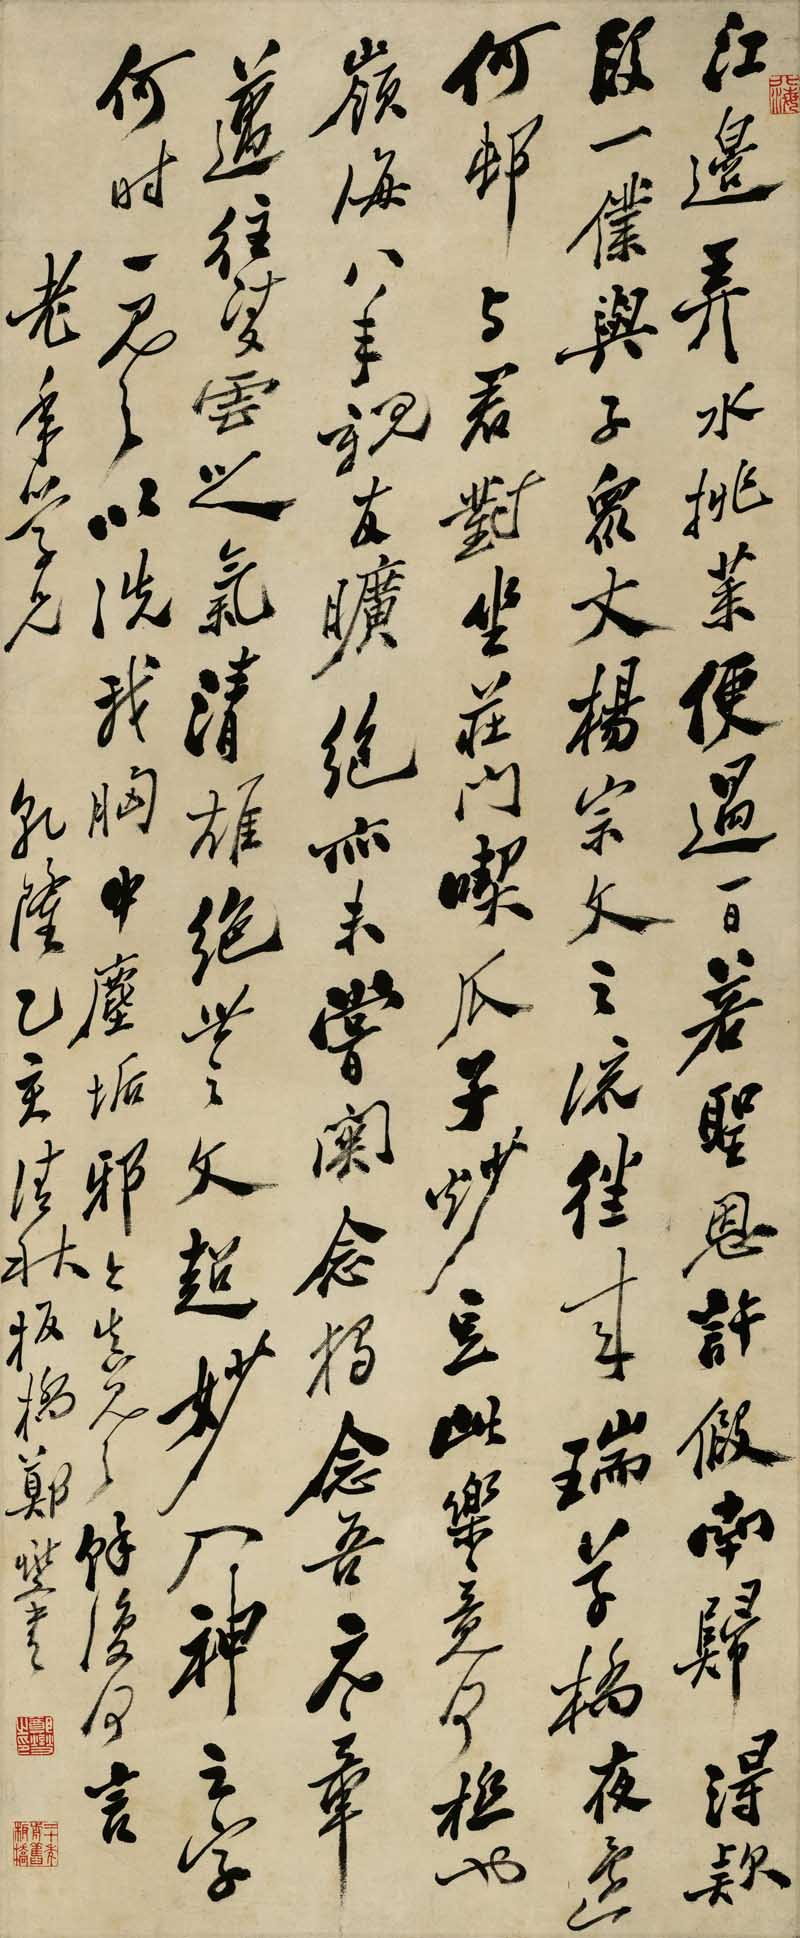 江邊弄水挑菜便過一日若聖恩許假南歸得款
段一僕與子衆丈楊宗文之流往來瑞草橋夜還
何邨与君對坐莊門喫瓜子炒豆此樂竟何極也
嶺海八年親友曠絕亦未嘗關念獨念吾元章
邁往凌雲之氣清雄絕世之文超妙入神之字
何时一見之以洗我胸中塵垢邪今真見之餘復何言
老年學兄
乾隆乙亥清秋板橋鄭燮書